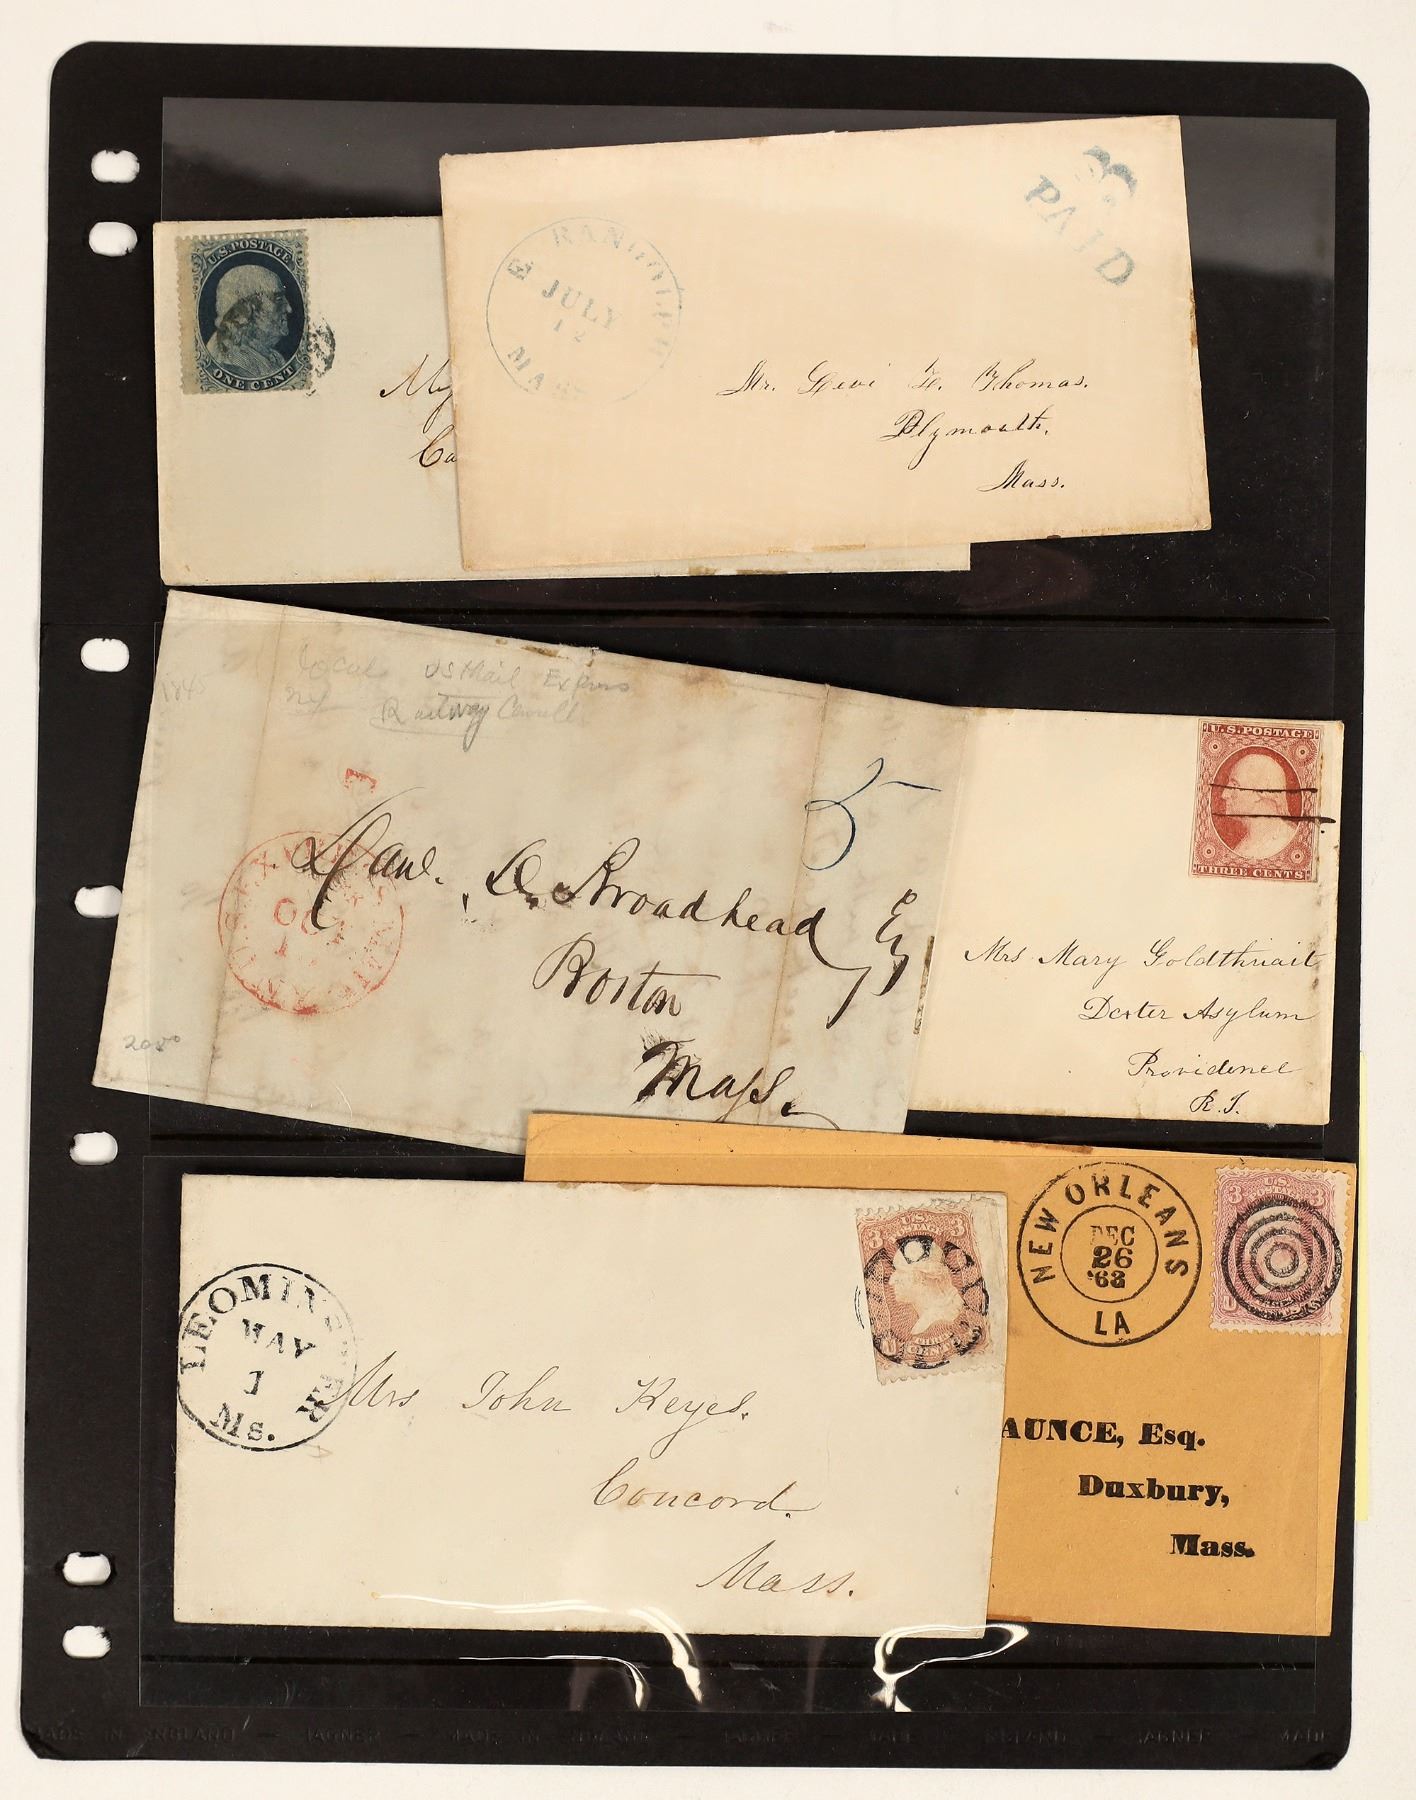 U.S. POSTAGE
ONE CENT
My
Ca
E RANDOLPH
JULY
12
MASS
PAID
Mr. Levi L. Thomas.
Plymouth,
Mass.
1845
Local US Mail Express
Railway
2050
OCT
5
D. Broadhead Esq
Boston
Mass.
U.S. POSTAGE
THREE CENTS
Mrs Mary Goldthwait
Dexter Asylum
Providence
R. I.
LEOMINSTER
MAY
1
Ms.
3 U.S. POSTAGE 3
THREE
CENTS
Mrs John Keyes.
Concord.
Mass.
NEW ORLEANS
DEC
26
'63
LA
3 U.S. 3
AUNCE, Esq.
Duxbury,
Mass.
MADE IN ENGLAND — HAGNER — MADE IN ENGLAND — HAGNER — MADE IN ENGLAND — HAGNER — MADE